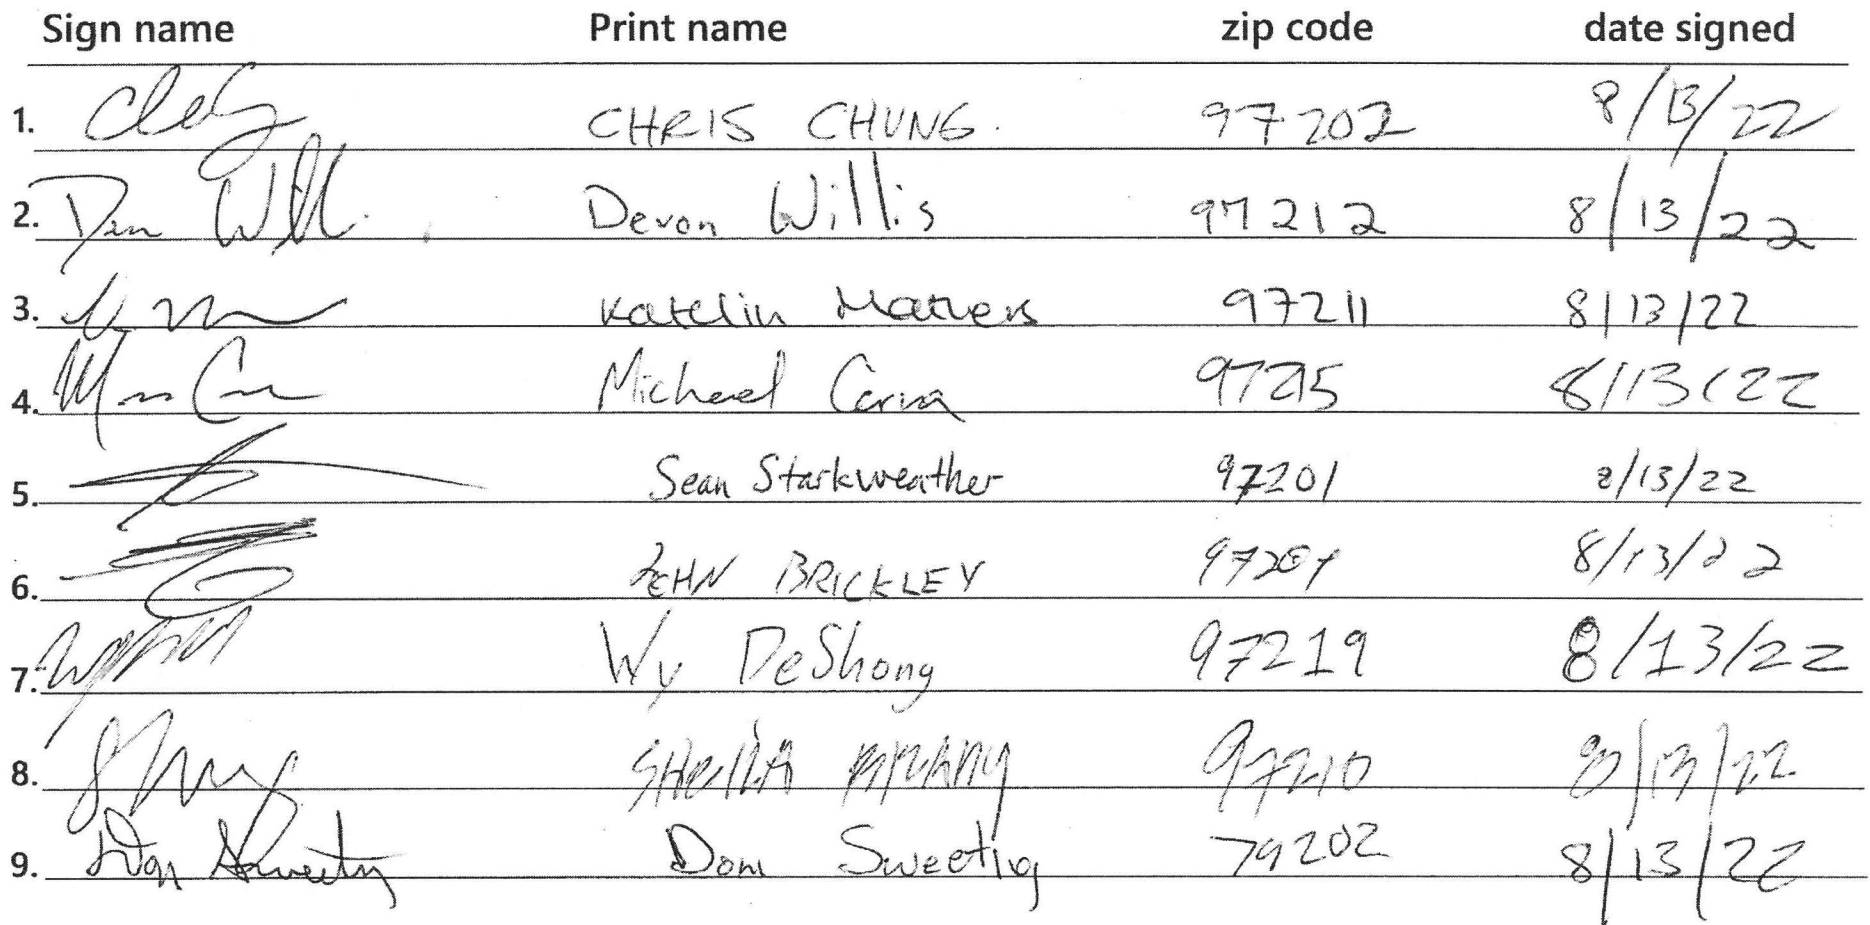 Sign name Print name zip code date signed
1. CHRIS CHUNG. 97202 8/13/22
2. Devon Willis 97212 8/13/22
3. Katelin 97211 8/13/22
4. Michael 97215 8/13/22
5. Sean Starkweather 97201 8/13/22
6. JOHN BRICKLEY 97201 8/13/22
7. Wy DeShong 97219 8/13/22
8. SHEILA 97210 8/13/22
9. Don Sweeting Dom Sweeting 79202 8/13/22